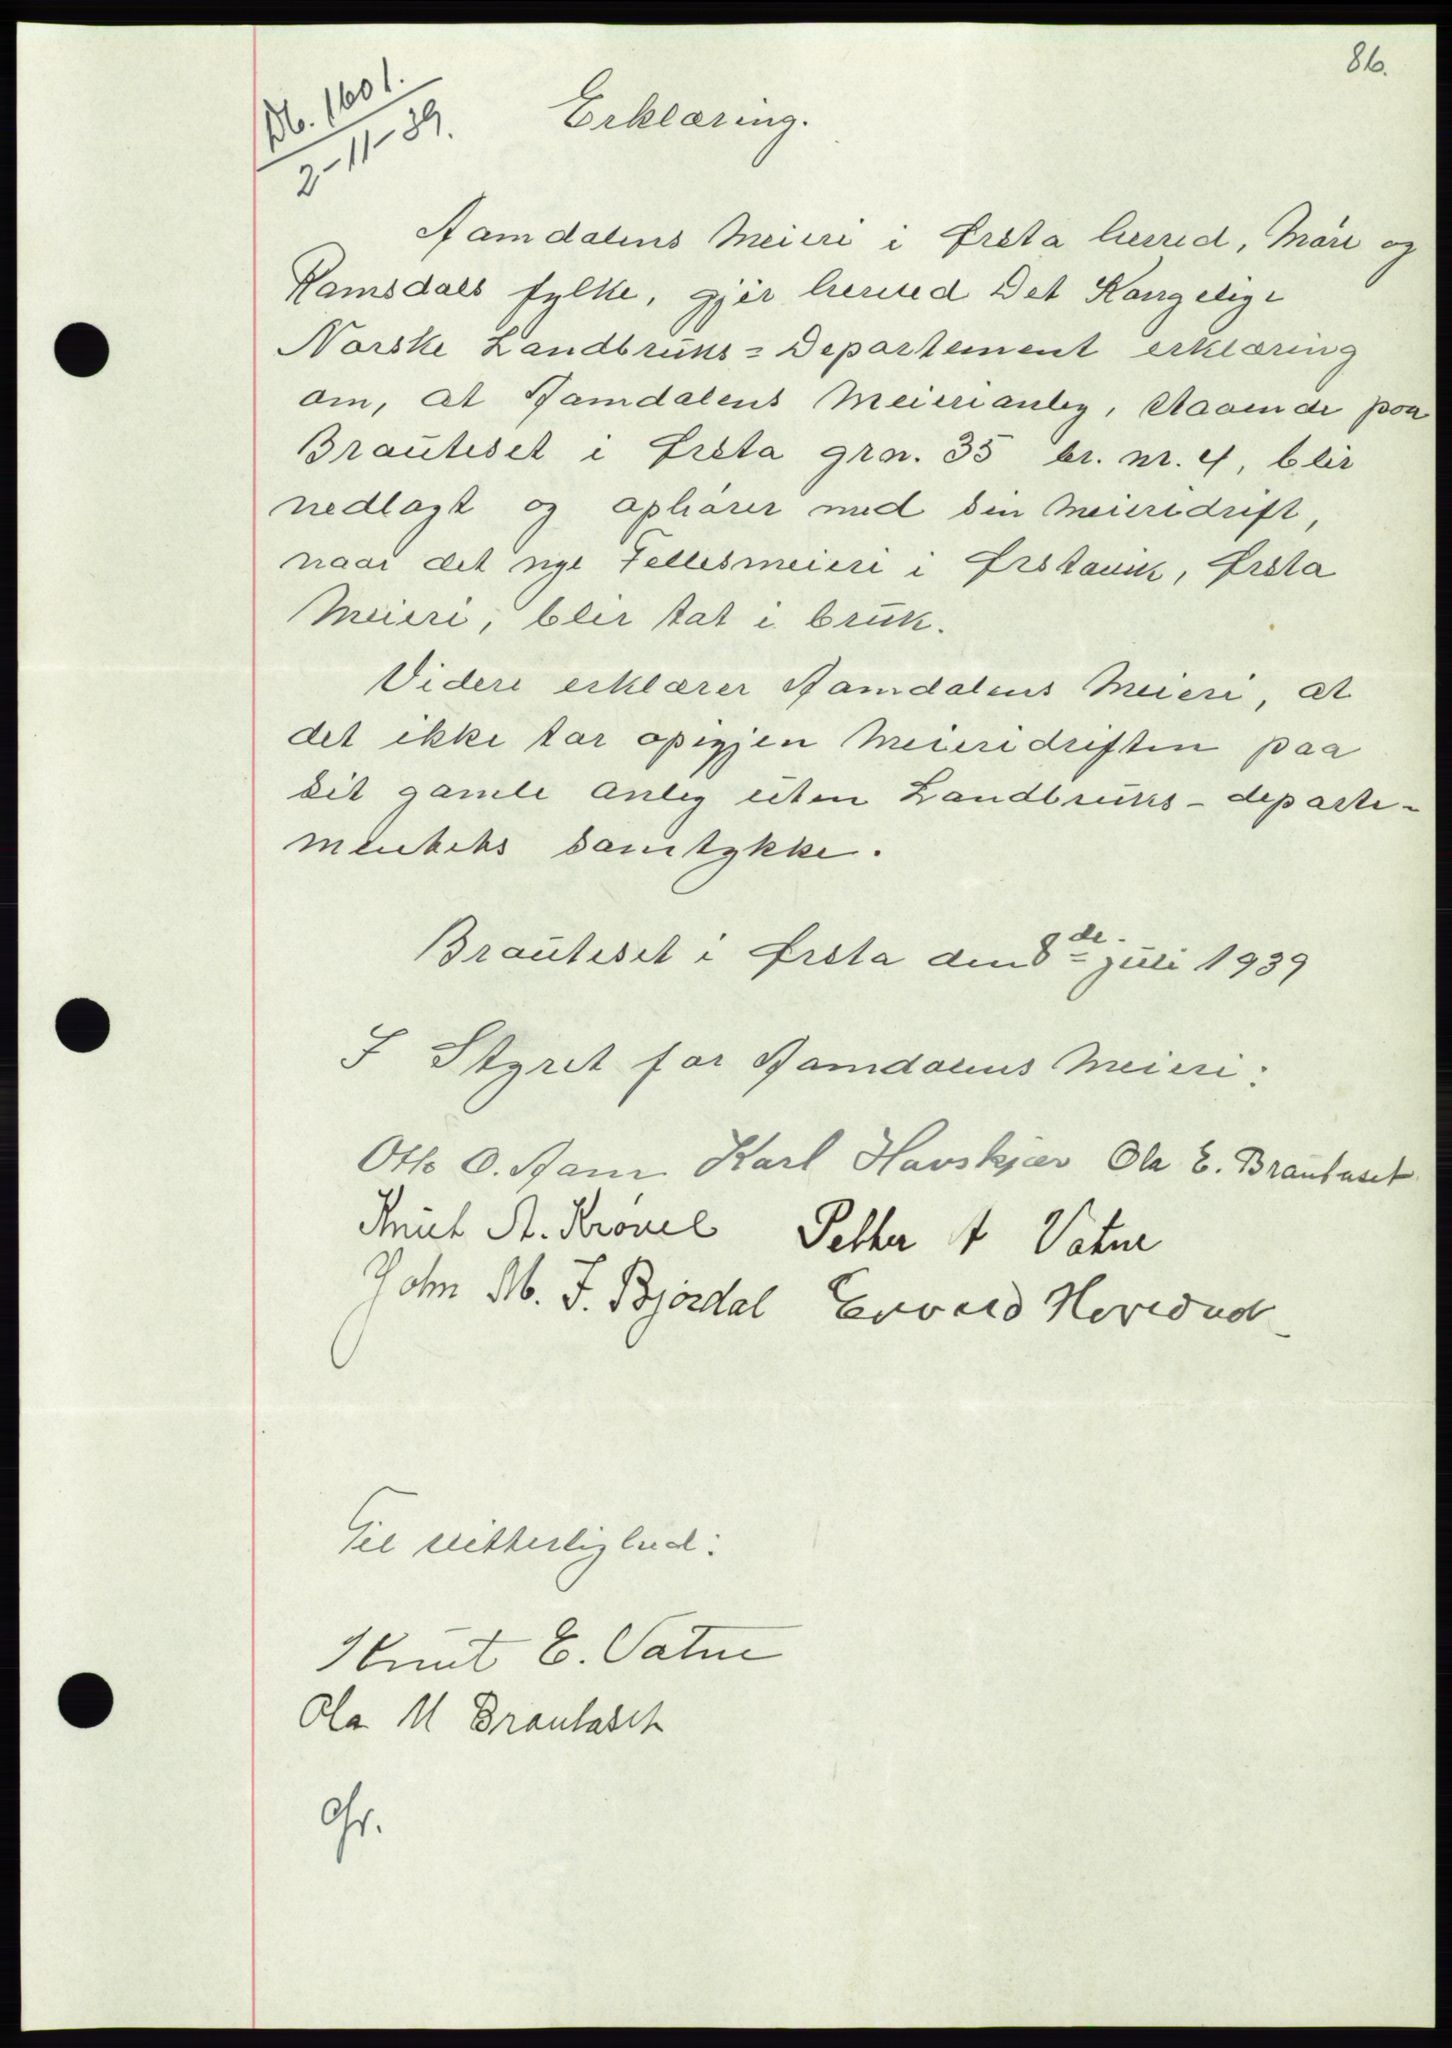 86.
Db. 1601.
2-11-39.
Erklæring.
Aamdalens Meieri i Ørsta herred, Møre og
Romsdals fylke, gjør herved Det Kongelige
Norske Landbruks=Departement erklæring
om, at Aamdalens Meierianleg, staaende paa
Brauteset i Ørsta grn. 35 br. nr. 4, blir
nedlagt og ophører med sin Meieridrift,
naar det nye Fellesmeieri i Ørstavik, Ørsta
Meieri, blir tat i bruk.
Videre erklærer Aamdalens Meieri, at
det ikke tar opigjen Meieridriften paa
sit gamle anleg uten Landbruks-departe-
mentets samtykke.
Brauteset i Ørsta den 8de juli 1939
I Styret for Aamdalens Meieri:
Otto O. Aam Karl Havskjær Ola E. Brautaset
Knut A. Krøvel Petter A Vatne
John M. J. Bjørdal
Til vitterlighed:
Knut E. Vatne
Ola M Brautaset